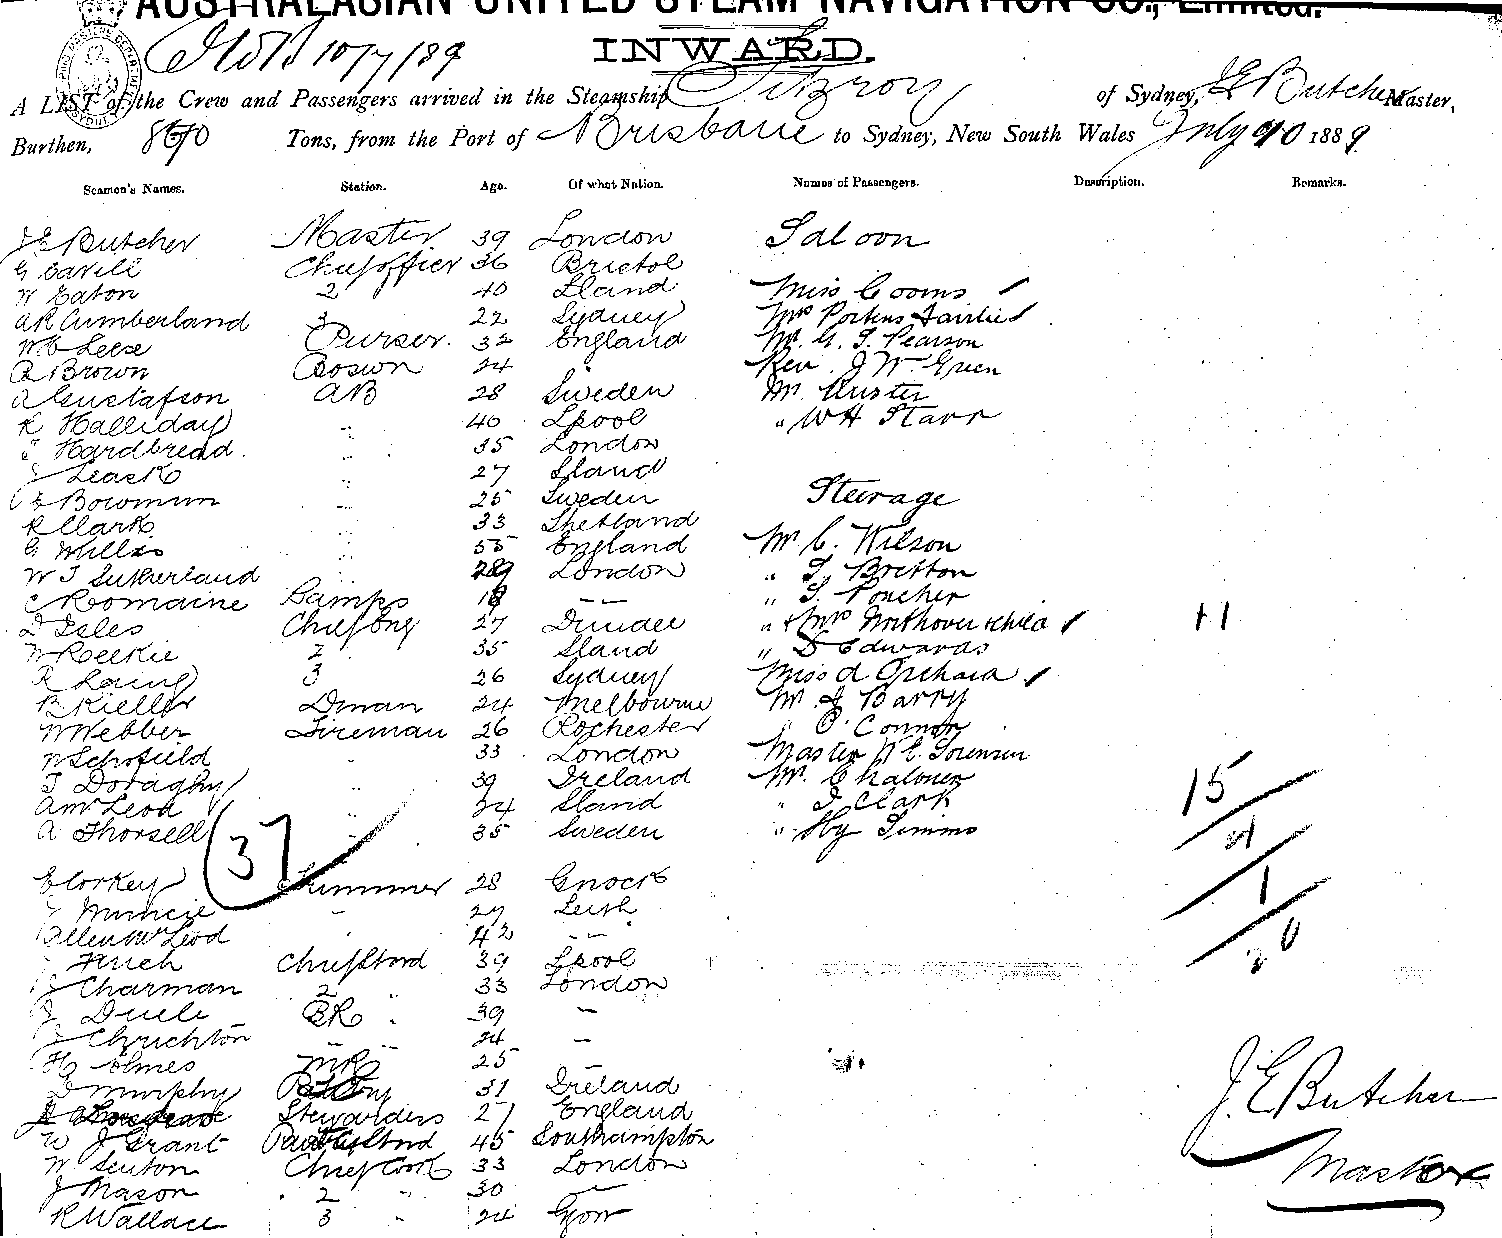 AUSTRALASIAN UNITED STEAM NAVIGATION CO., Limited.
10/7/89 INWARD.
A LIST of the Crew and Passengers arrived in the Steamship Fitzroy of Sydney, J E Butcher Master,
Burthen, 870 Tons, from the Port of Brisbane to Sydney, New South Wales July 10 1889
Seamen's Names. Station. Age. Of what Nation. Names of Passengers. Description. Remarks.
J E Butcher Master 39 London Saloon
G Cavill Chief officer 36 Bristol
W Eaton 2 40 Sland Miss Cooms
A R Cumberland 3 22 Sydney Mrs Porteus Fairlie
W C Leese Purser. 32 England Mr. G. S. Pearson
Brown Bosun 24 Rev. J W. Green
A Gustafson AB 28 Sweden Mr Kuster
R Halliday " 40 Lpool " W H Starr
Hardbread. " 35 London
J Leask " 27 Sland
Bowmun " 25 Sweden Steerage
R Clark " 33 Shetland
G Wills " 55 England Mr C. Wilson
W J Sutherland " 29 London " S. Britton
C Romaine Lamps 18 — " S. Poucher
D Isles Chief Eng 27 Dundee " & Mrs Northover & child 11
W Reekie 2 35 Sland " D Edwards
R Laing 3 26 Sydney Miss A Orchard
B Kieller Dman 24 Melbourne Mr. J Barry
W Webber Fireman 26 Rochester " P. Connor
W Schofield " 33 London Master W. E. Sorensen
T Doraghy " 39 Ireland Mr. Chaloner 15
A McLeod " 24 Sland " J. Clark
A Thorsell " 35 Sweden " Hy Simms
37
C Corkey Trimmer 28 Gnock 1
J Muncie " 27 Leith
Allen McLeod " 42 — 20
Finch Chief Stord 39 Lpool
J Charman 2 " 33 London
J Duele BR " 39 —
J Chrichton " " 24 —
H Holmes MR 25
D Murphy Pantry 31 Ireland J. E Butcher
Stewardess 27 England
W J Grant Stord 45 Southampton
W Seuton Chief Cook 33 London Master
J Mason 2 " 30 —
R Wallace 3 " 24